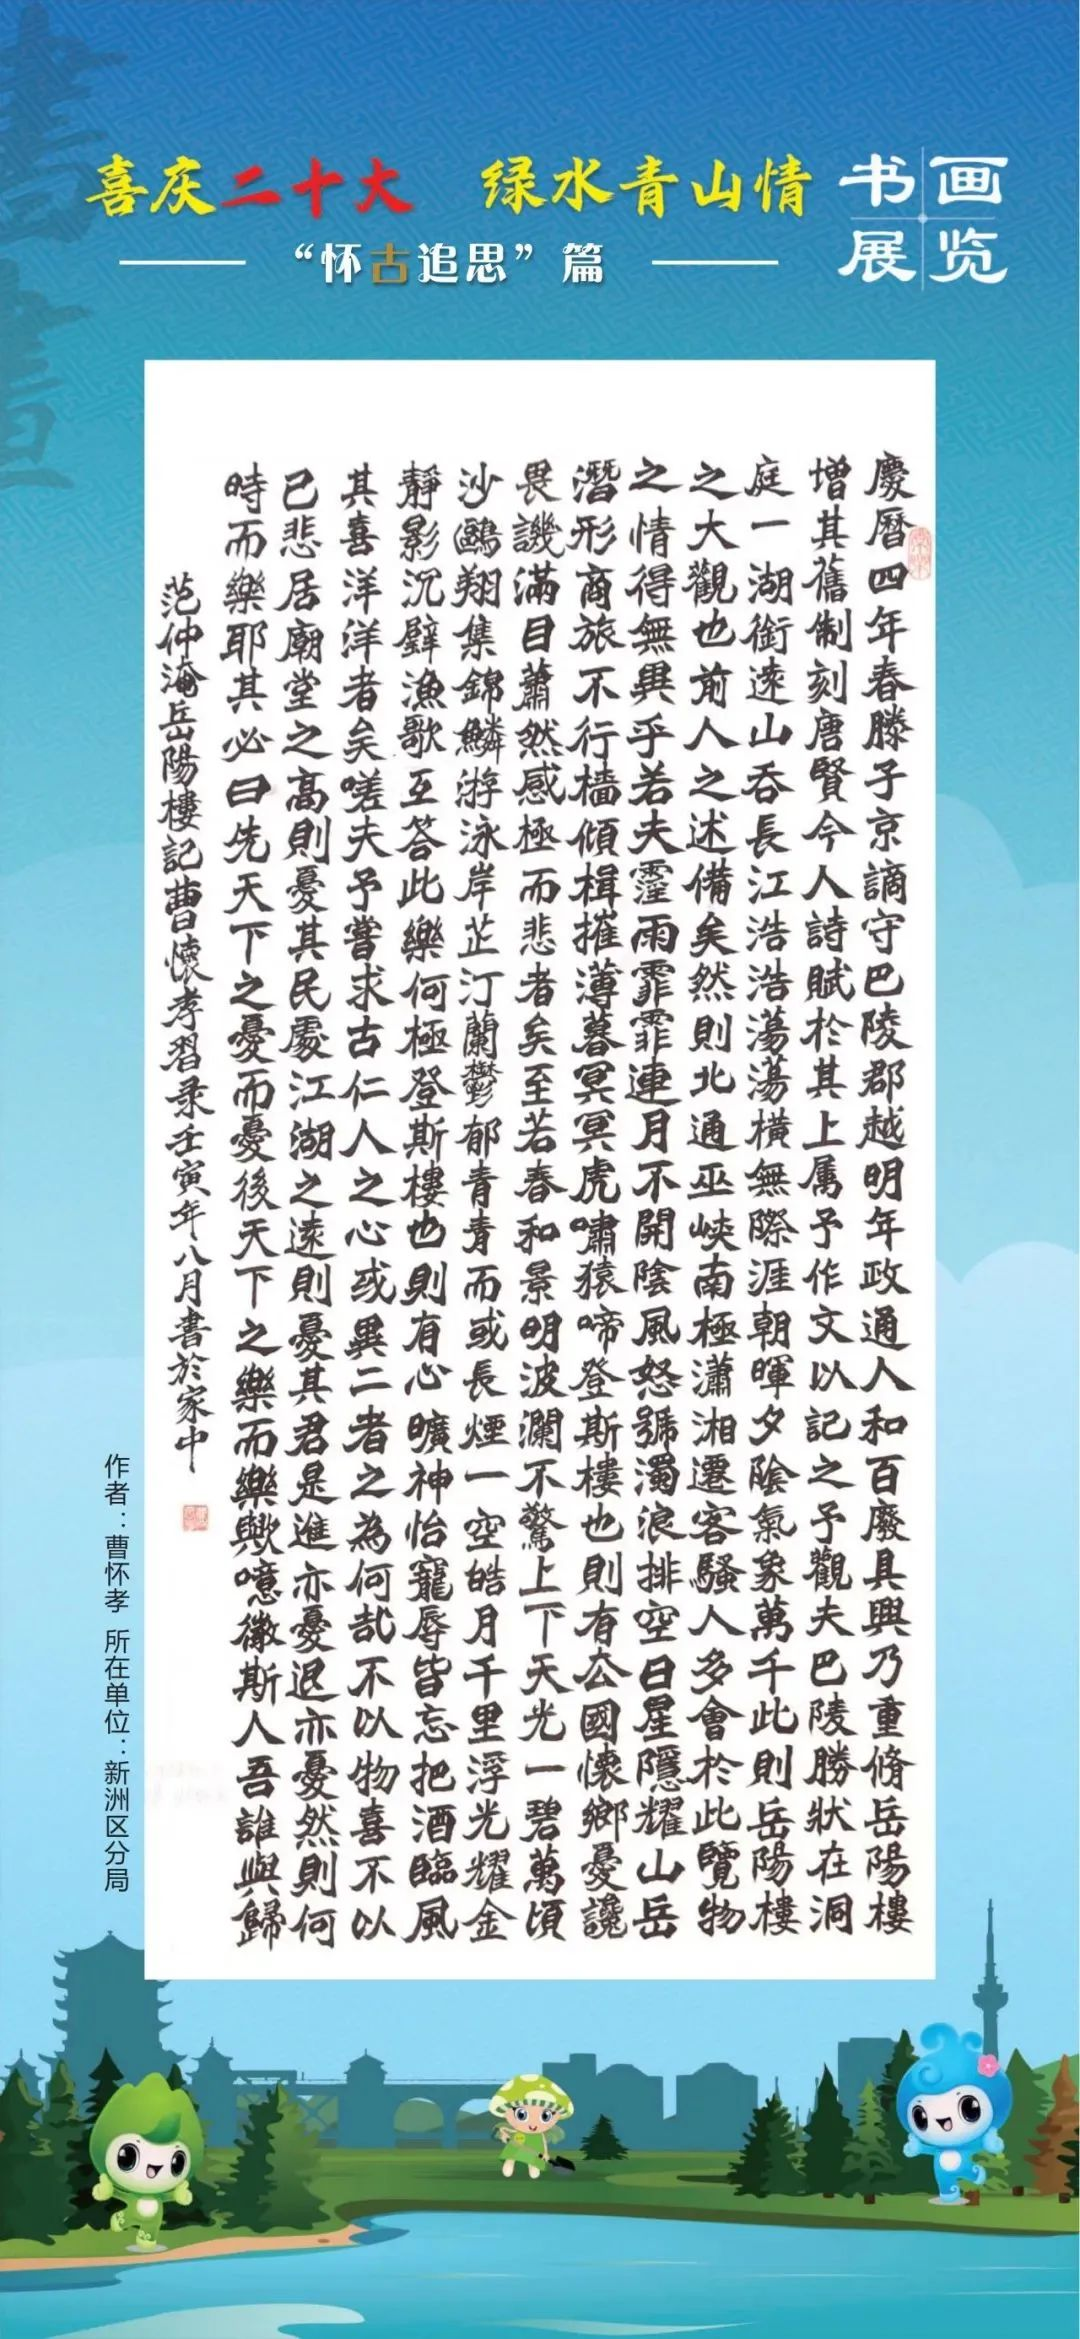 喜庆二十大 绿水青山情
“怀古追思”篇
书画
展览
慶曆四年春滕子京謫守巴陵郡越明年政通人和百廢具興乃重脩岳陽樓
增其舊制刻唐賢今人詩賦於其上属予作文以記之予觀夫巴陵勝狀在洞
庭一湖銜遠山吞長江浩浩蕩蕩橫無際涯朝暉夕陰氣象萬千此則岳陽樓
之大觀也前人之述備矣然則北通巫峽南極瀟湘遷客騷人多會於此覽物
之情得無異乎若夫霪雨霏霏連月不開陰風怒號濁浪排空日星隱耀山岳
潛形商旅不行檣傾楫摧薄暮冥冥虎嘯猿啼登斯樓也則有去國懷鄉憂讒
畏譏滿目蕭然感極而悲者矣至若春和景明波瀾不驚上下天光一碧萬頃
沙鷗翔集錦鱗游泳岸芷汀蘭鬱郁青青而或長煙一空皓月千里浮光耀金
靜影沉璧漁歌互答此樂何極登斯樓也則有心曠神怡寵辱皆忘把酒臨風
其喜洋洋者矣嗟夫予嘗求古仁人之心或異二者之為何哉不以物喜不以
己悲居廟堂之高則憂其民處江湖之遠則憂其君是進亦憂退亦憂然則何
時而樂耶其必曰先天下之憂而憂後天下之樂而樂歟噫微斯人吾誰與歸
范仲淹岳陽樓記曹懷孝習录壬寅年八月書於家中
作者：曹怀孝 所在单位：新洲区分局
書畫